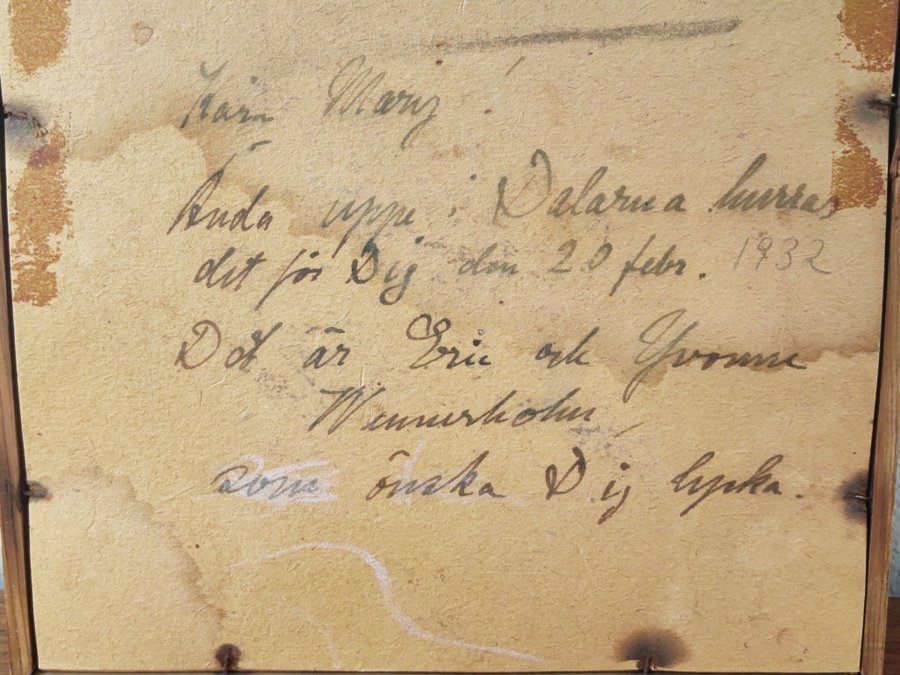 Kära Mary!
Ända uppe i Dalarna hurras
det för Dig den 20 febr. 1932
Det är Eric och Yvonne
Wennerholm,
som önska Dig lycka.